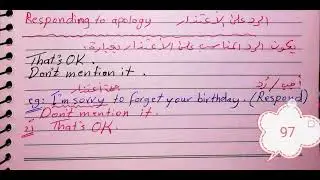 Responding to apology الرد على الأعتذار
يكون الرد المناسب على الأعتذار بعبارة:
That's OK.
Don't mention it.
أجب / رُد
جملة اعتذار
eg: I'm sorry to forget your birthday. (Respond)
Don't mention it.
That's OK.
97